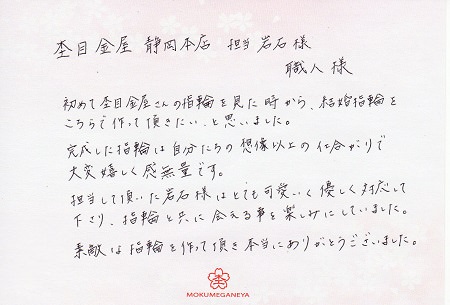 杢目金屋 静岡本店 担当 岩石様
職人様
初めて杢目金屋さんの指輪を見た時から、結婚指輪を
こちらで作って頂きたい、と思いました。
完成した指輪は自分たちの想像以上の仕上がりで
大変嬉しく感無量です。
担当して頂いた岩石様はとても可愛いく優しく対応して
下さり、指輪と共に会える事を楽しみにしていました。
素敵な指輪を作って頂き本当にありがとうございました。
MOKUMEGANEYA